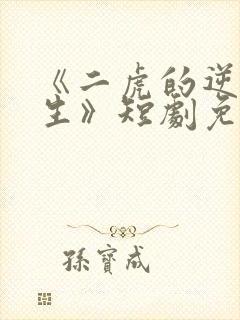 《二虎的逆
生》短劇免
孫寶成